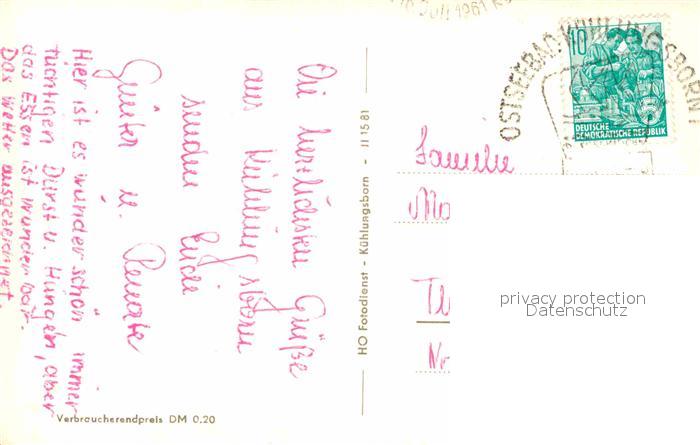 10
DEUTSCHE
DEMOKRATISCHE REPUBLIK
OSTSEEBAD KÜHLUNGSBORN
Die herzlichsten Grüße
aus Kühlungsborn
senden Euch
Günter u. Renate
Hier ist es wunder schön immer
tüchtigen Durst u. Hunger, aber
das Essen ist wunderbar.
Das Wetter ausgezeichnet.
HO Fotodienst - Kühlungsborn - II 1581
Familie
Verbraucherendpreis DM 0.20
privacy protection
Datenschutz